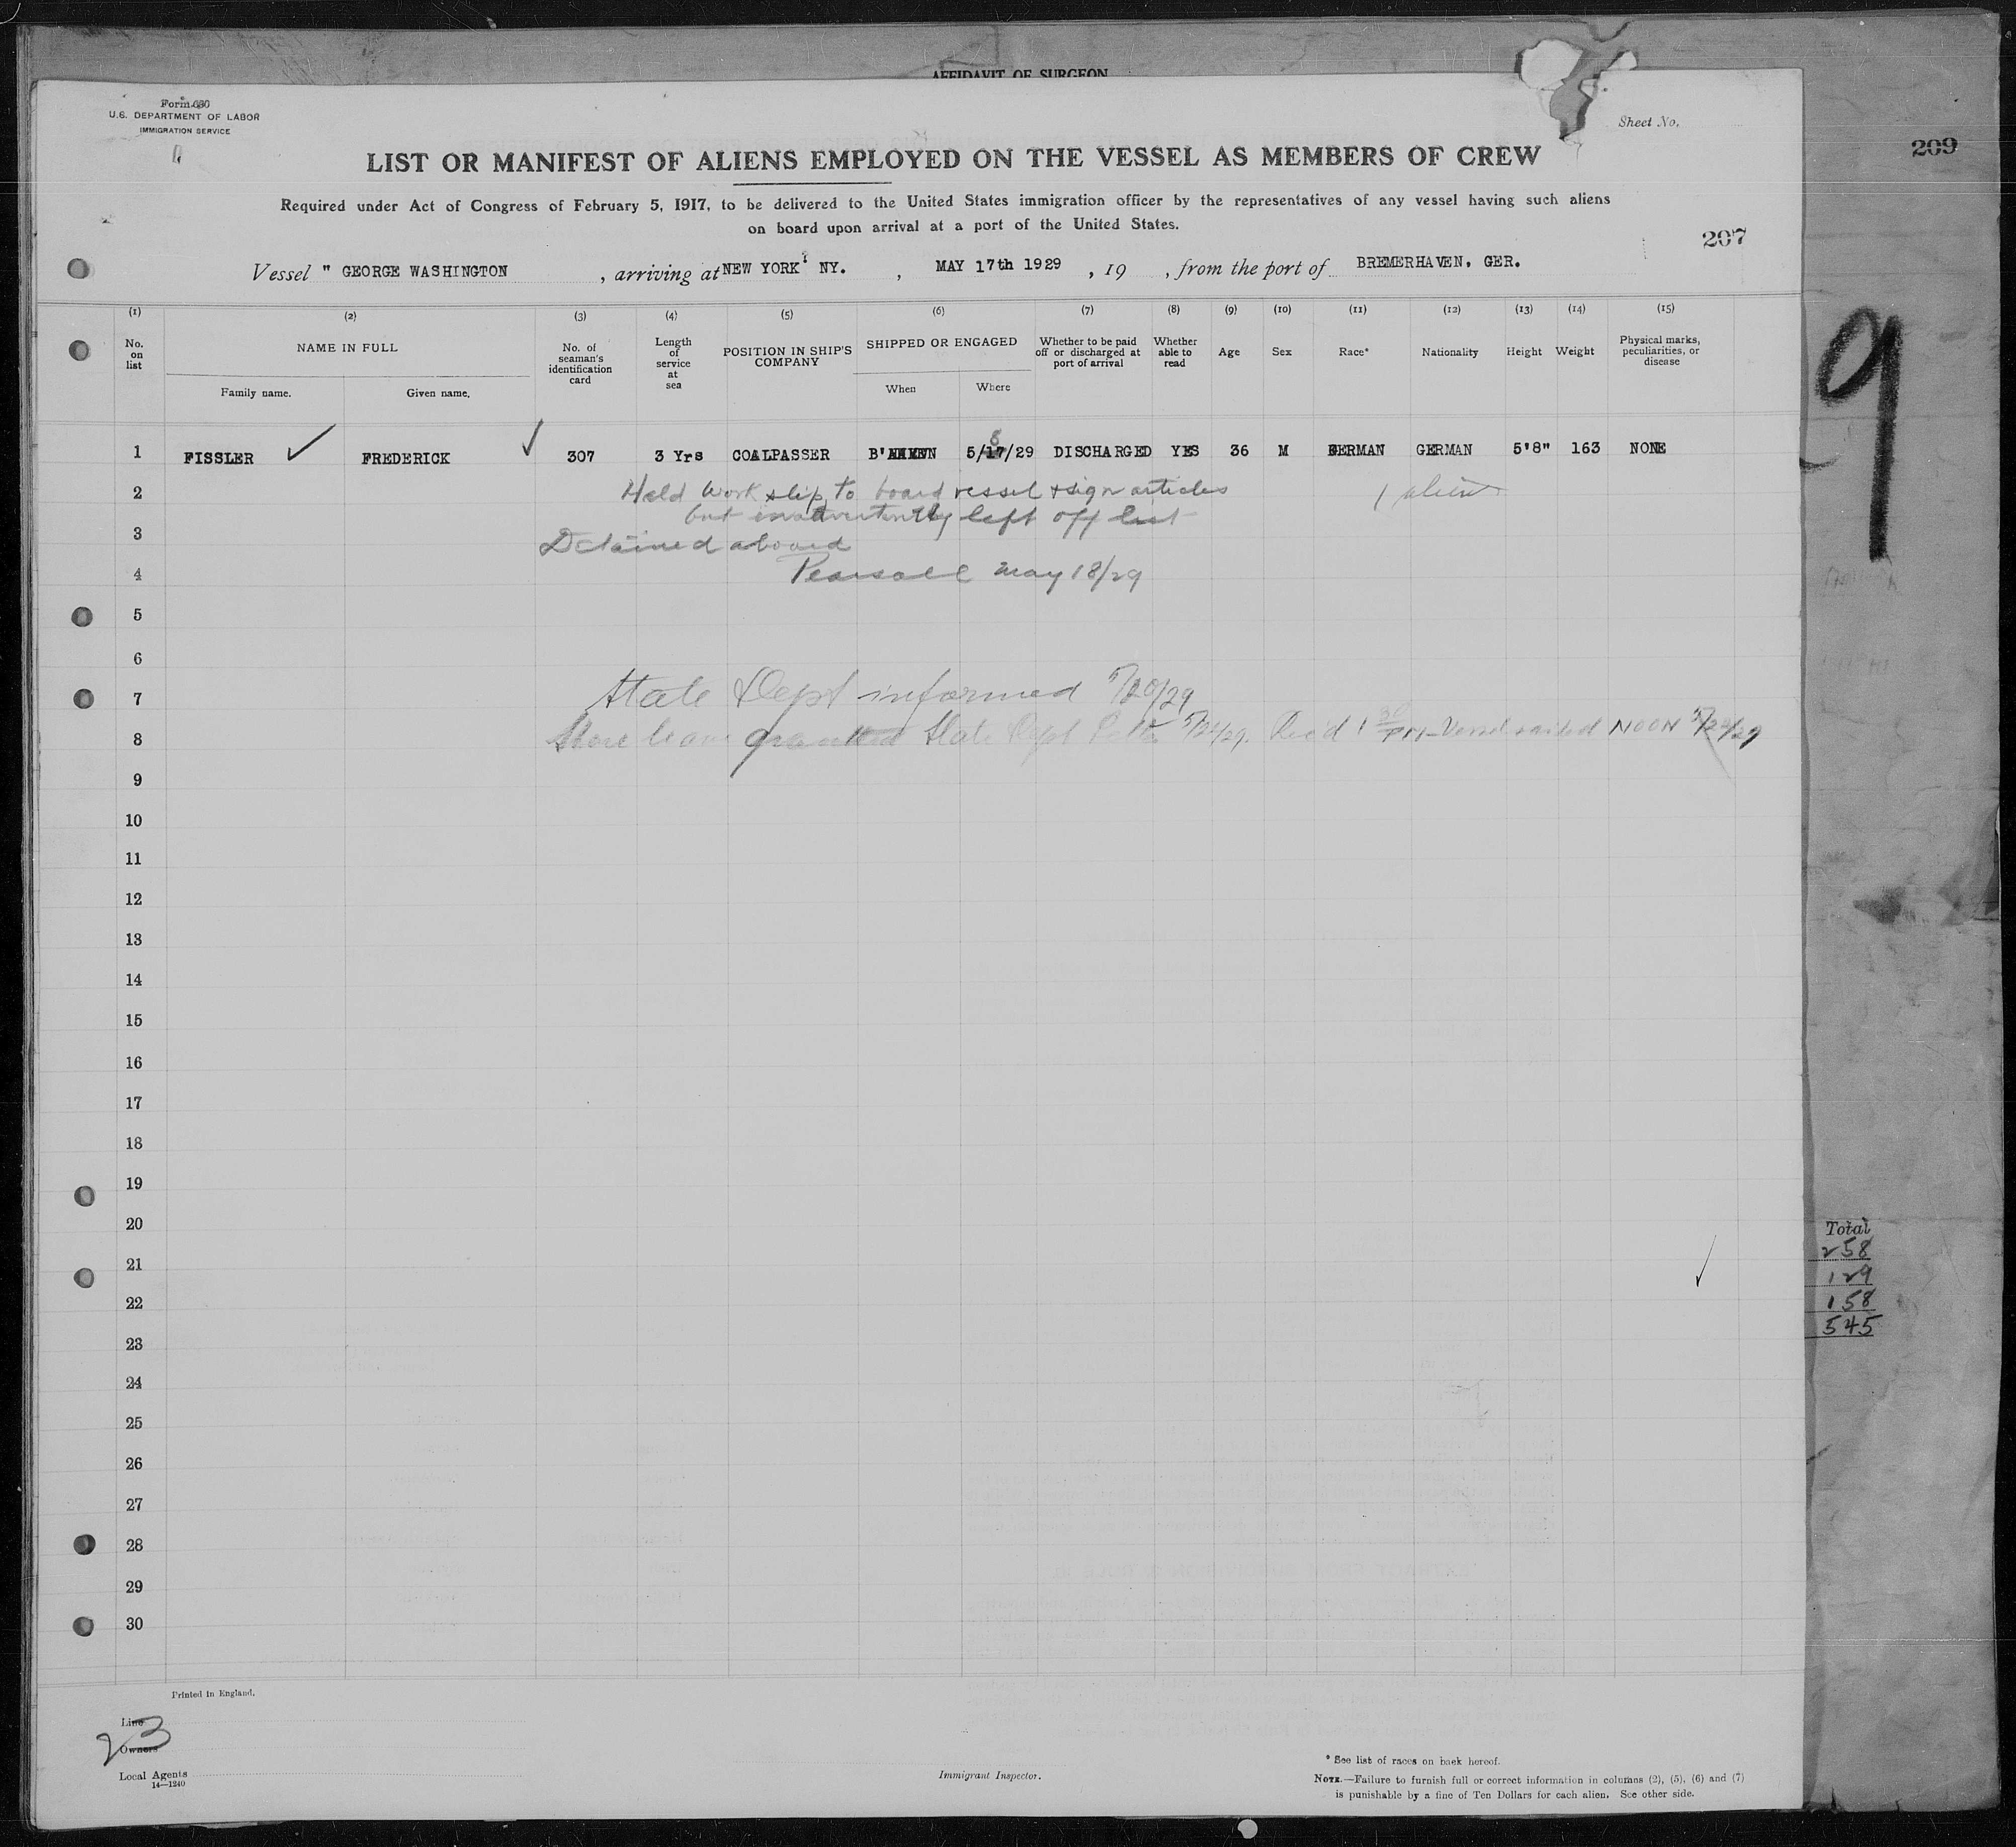 AFFIDAVIT OF SURGEON
Form 680
U.S. DEPARTMENT OF LABOR
IMMIGRATION SERVICE
Sheet No.
209
LIST OR MANIFEST OF ALIENS EMPLOYED ON THE VESSEL AS MEMBERS OF CREW
Required under Act of Congress of February 5, 1917, to be delivered to the United States immigration officer by the representatives of any vessel having such aliens
on board upon arrival at a port of the United States.
207
Vessel " GEORGE WASHINGTON , arriving at NEW YORK NY. , MAY 17th 1929 , 19 , from the port of BREMERHAVEN. GER.
(1) (2) (3) (4) (5) (6) (7) (8) (9) (10) (11) (12) (13) (14) (15)
No. on list NAME IN FULL Family name. Given name. No. of seaman's identification card Length of service at sea POSITION IN SHIP'S COMPANY SHIPPED OR ENGAGED When Where Whether to be paid off or discharged at port of arrival Whether able to read Age Sex Race* Nationality Height Weight Physical marks, peculiarities, or disease
9
1 FISSLER FREDERICK 307 3 Yrs COALPASSER 5/8/29 DISCHARGED YES 36 M GERMAN GERMAN 5'8" 163 NONE
2 Held work slip to board vessel & sign articles 1 alien
but inadvertently left off list
3 Detained aboard
4 Pearsall May 18/29
5
6
7 State Dept informed 5/20/29
8 Shore leave granted State Dept 5/22/29. Rec'd 1 30 PM - Vessel sailed NOON 5/22/29
9
10
11
12
13
14
15
16
17
18
19
20
21
22
23
24
25
26
27
28
29
30
Total
258
129
158
545
Printed in England.
Line
23
Owners
Local Agents
14—1240
Immigrant Inspector.
* See list of races on back hereof.
NOTE.—Failure to furnish full or correct information in columns (2), (5), (6) and (7)
is punishable by a fine of Ten Dollars for each alien. See other side.